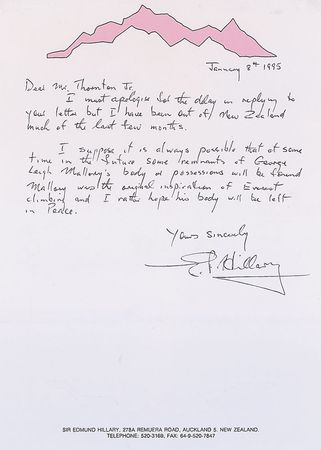 January 8th 1995
Dear Mr. Thornton Jr.
I must apologise for the delay in replying to
your letter but I have been out of New Zealand
much of the last few months.
I suppose it is always possible that at some
time in the future some remnants of George
Leigh Mallory's body or possessions will be found
Mallory was the original inspiration of Everest
climbing and I rather hope his body will be left
in Peace.
Yours Sincerely
E.P. Hillary
SIR EDMUND HILLARY, 278A REMUERA ROAD, AUCKLAND 5. NEW ZEALAND.
TELEPHONE: 520-3169, FAX: 64-9-520-7847